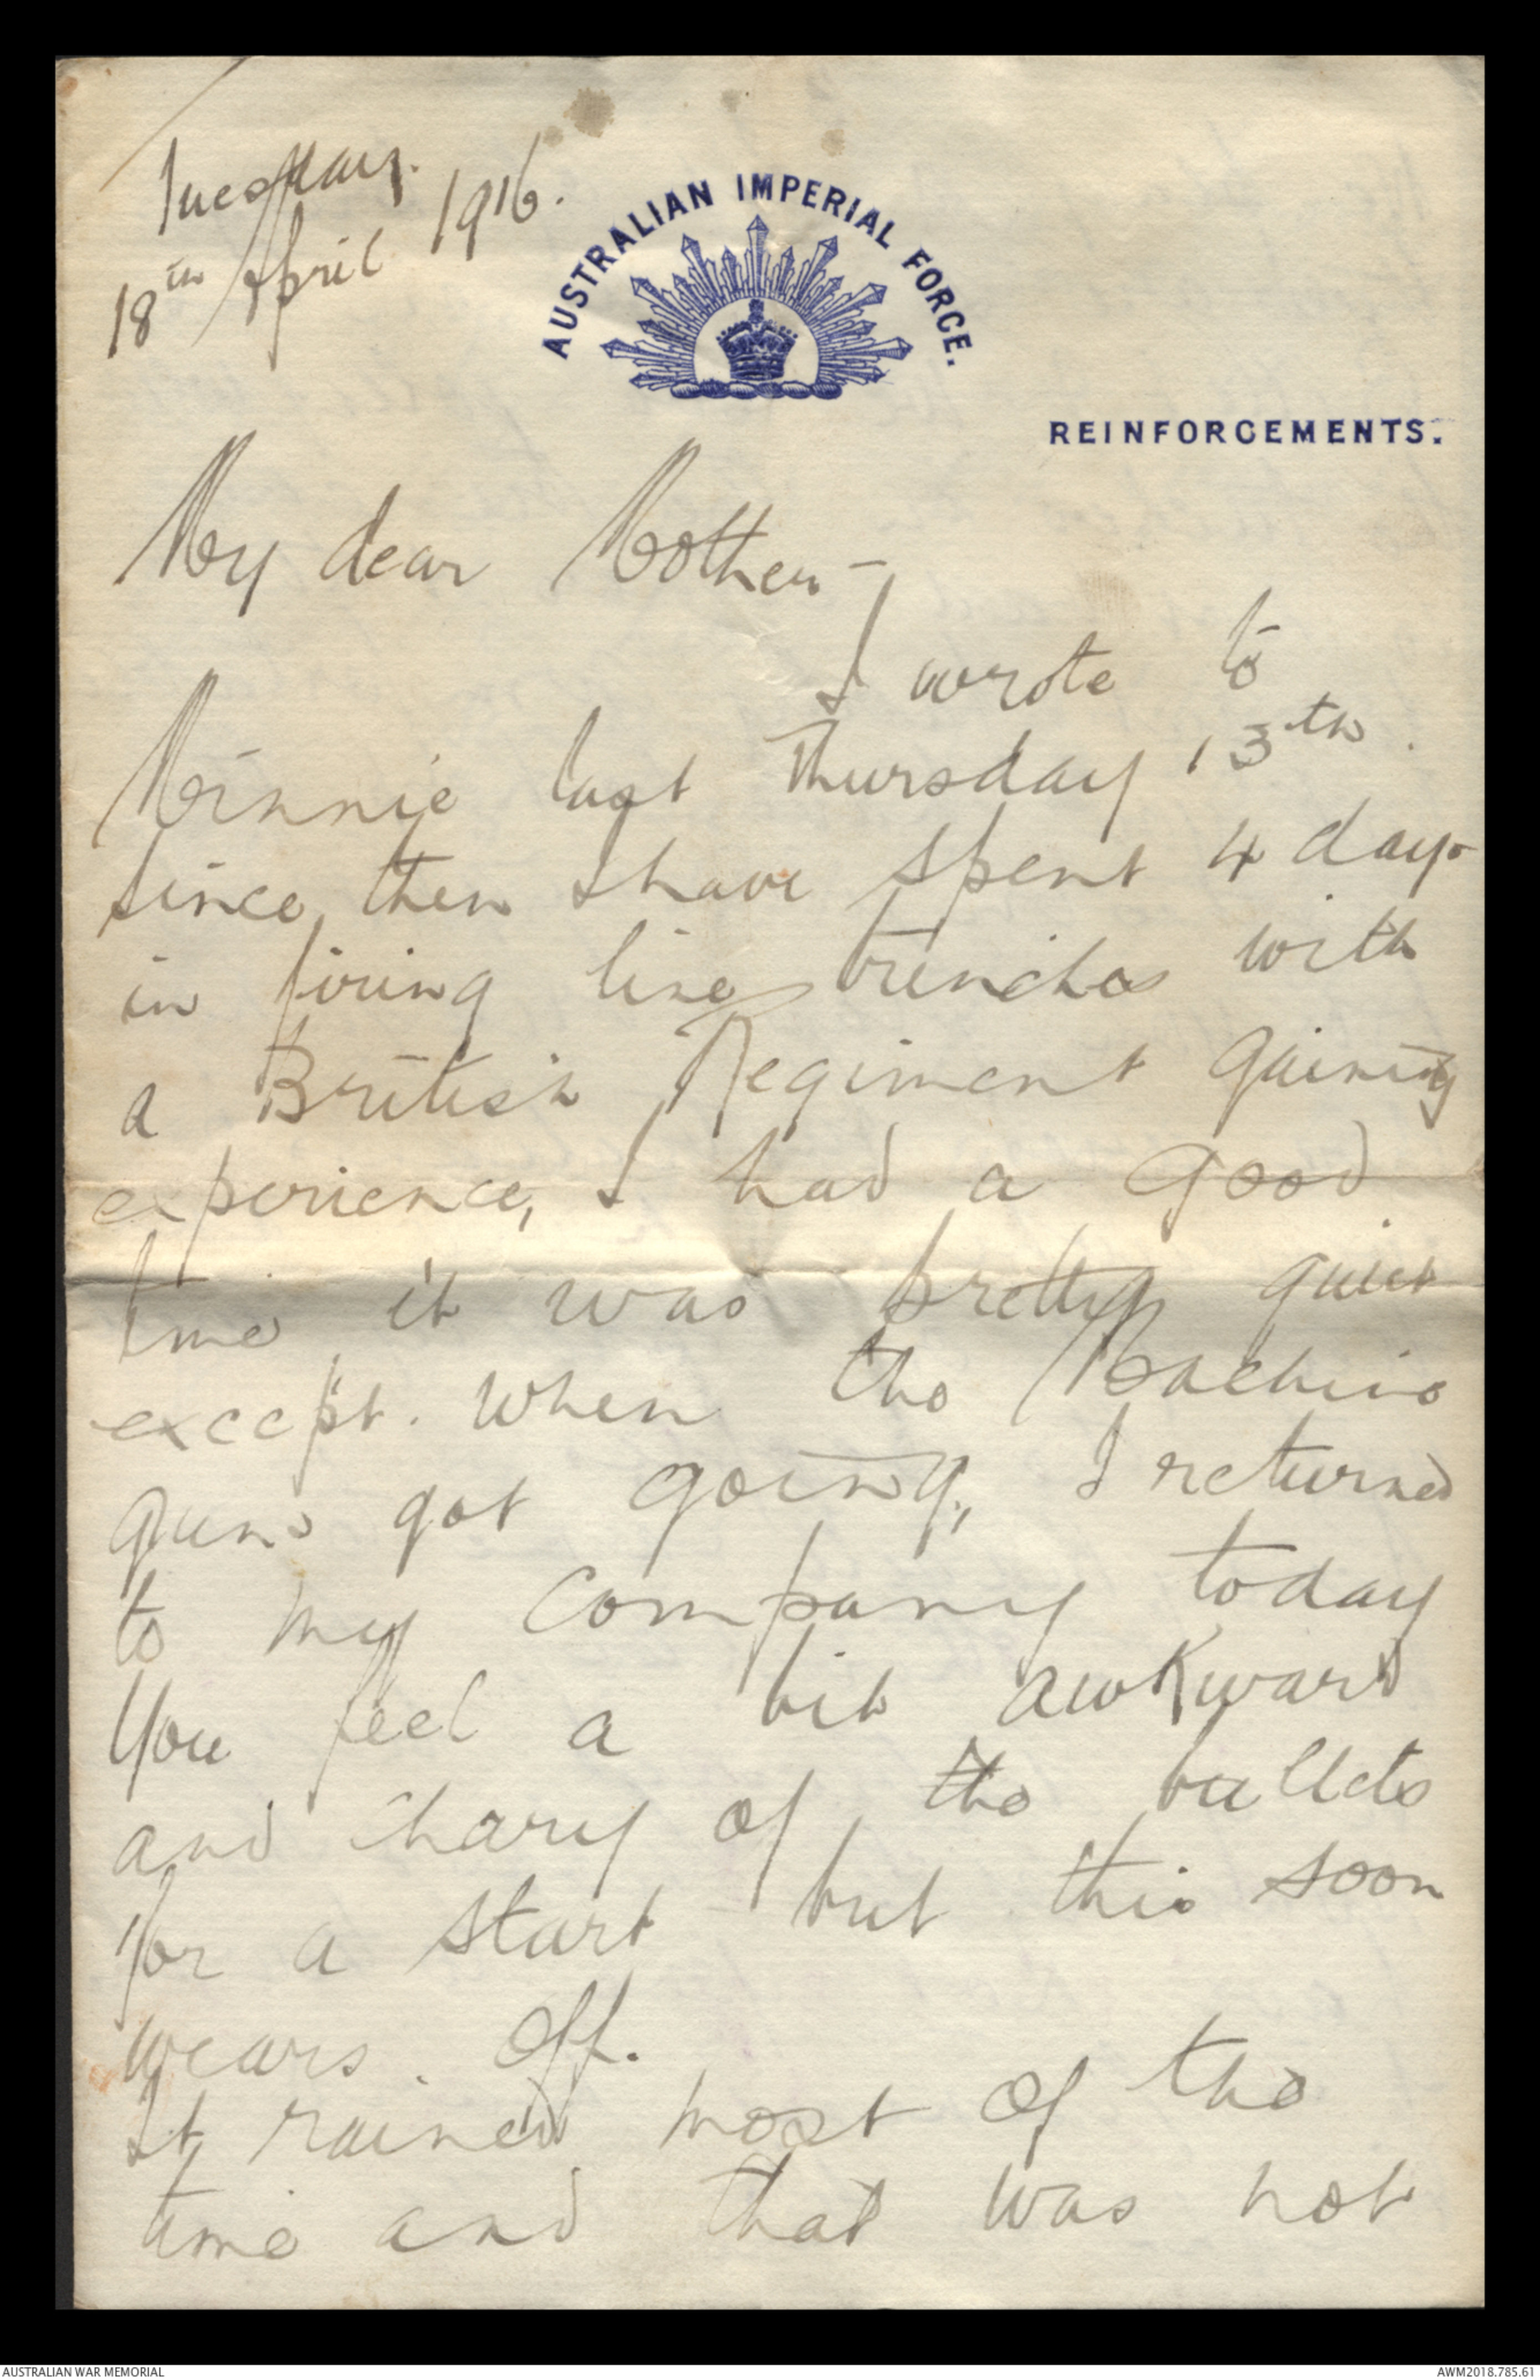 Tuesday.
18th April 1916.
AUSTRALIAN IMPERIAL FORCE.
REINFORCEMENTS.
My dear Mother -
I wrote to
Minnie last Thursday 13th.
since then I have spent 4 days
in firing line trenches with
a British Regiment gaining
experience, I had a good
time it was pretty quiet
except. when the Machine
guns got going, I returned
to my Company today
You feel a bit awkward
and chary of the bullets
for a start but this soon
wears. off.
It rained most of the
time and that was not
AUSTRALIAN WAR MEMORIAL
AWM2018.785.61